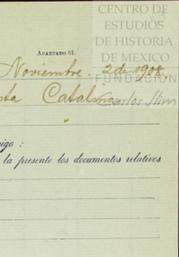 CENTRO DE
ESTUDIOS
DE HISTORIA
DE MEXICO
APARTADO 61.
Noviembre 2 de 1908
FUNDACIÓN
ta Catalina
Carlos Slim
igo :
la presente los documentos relativos